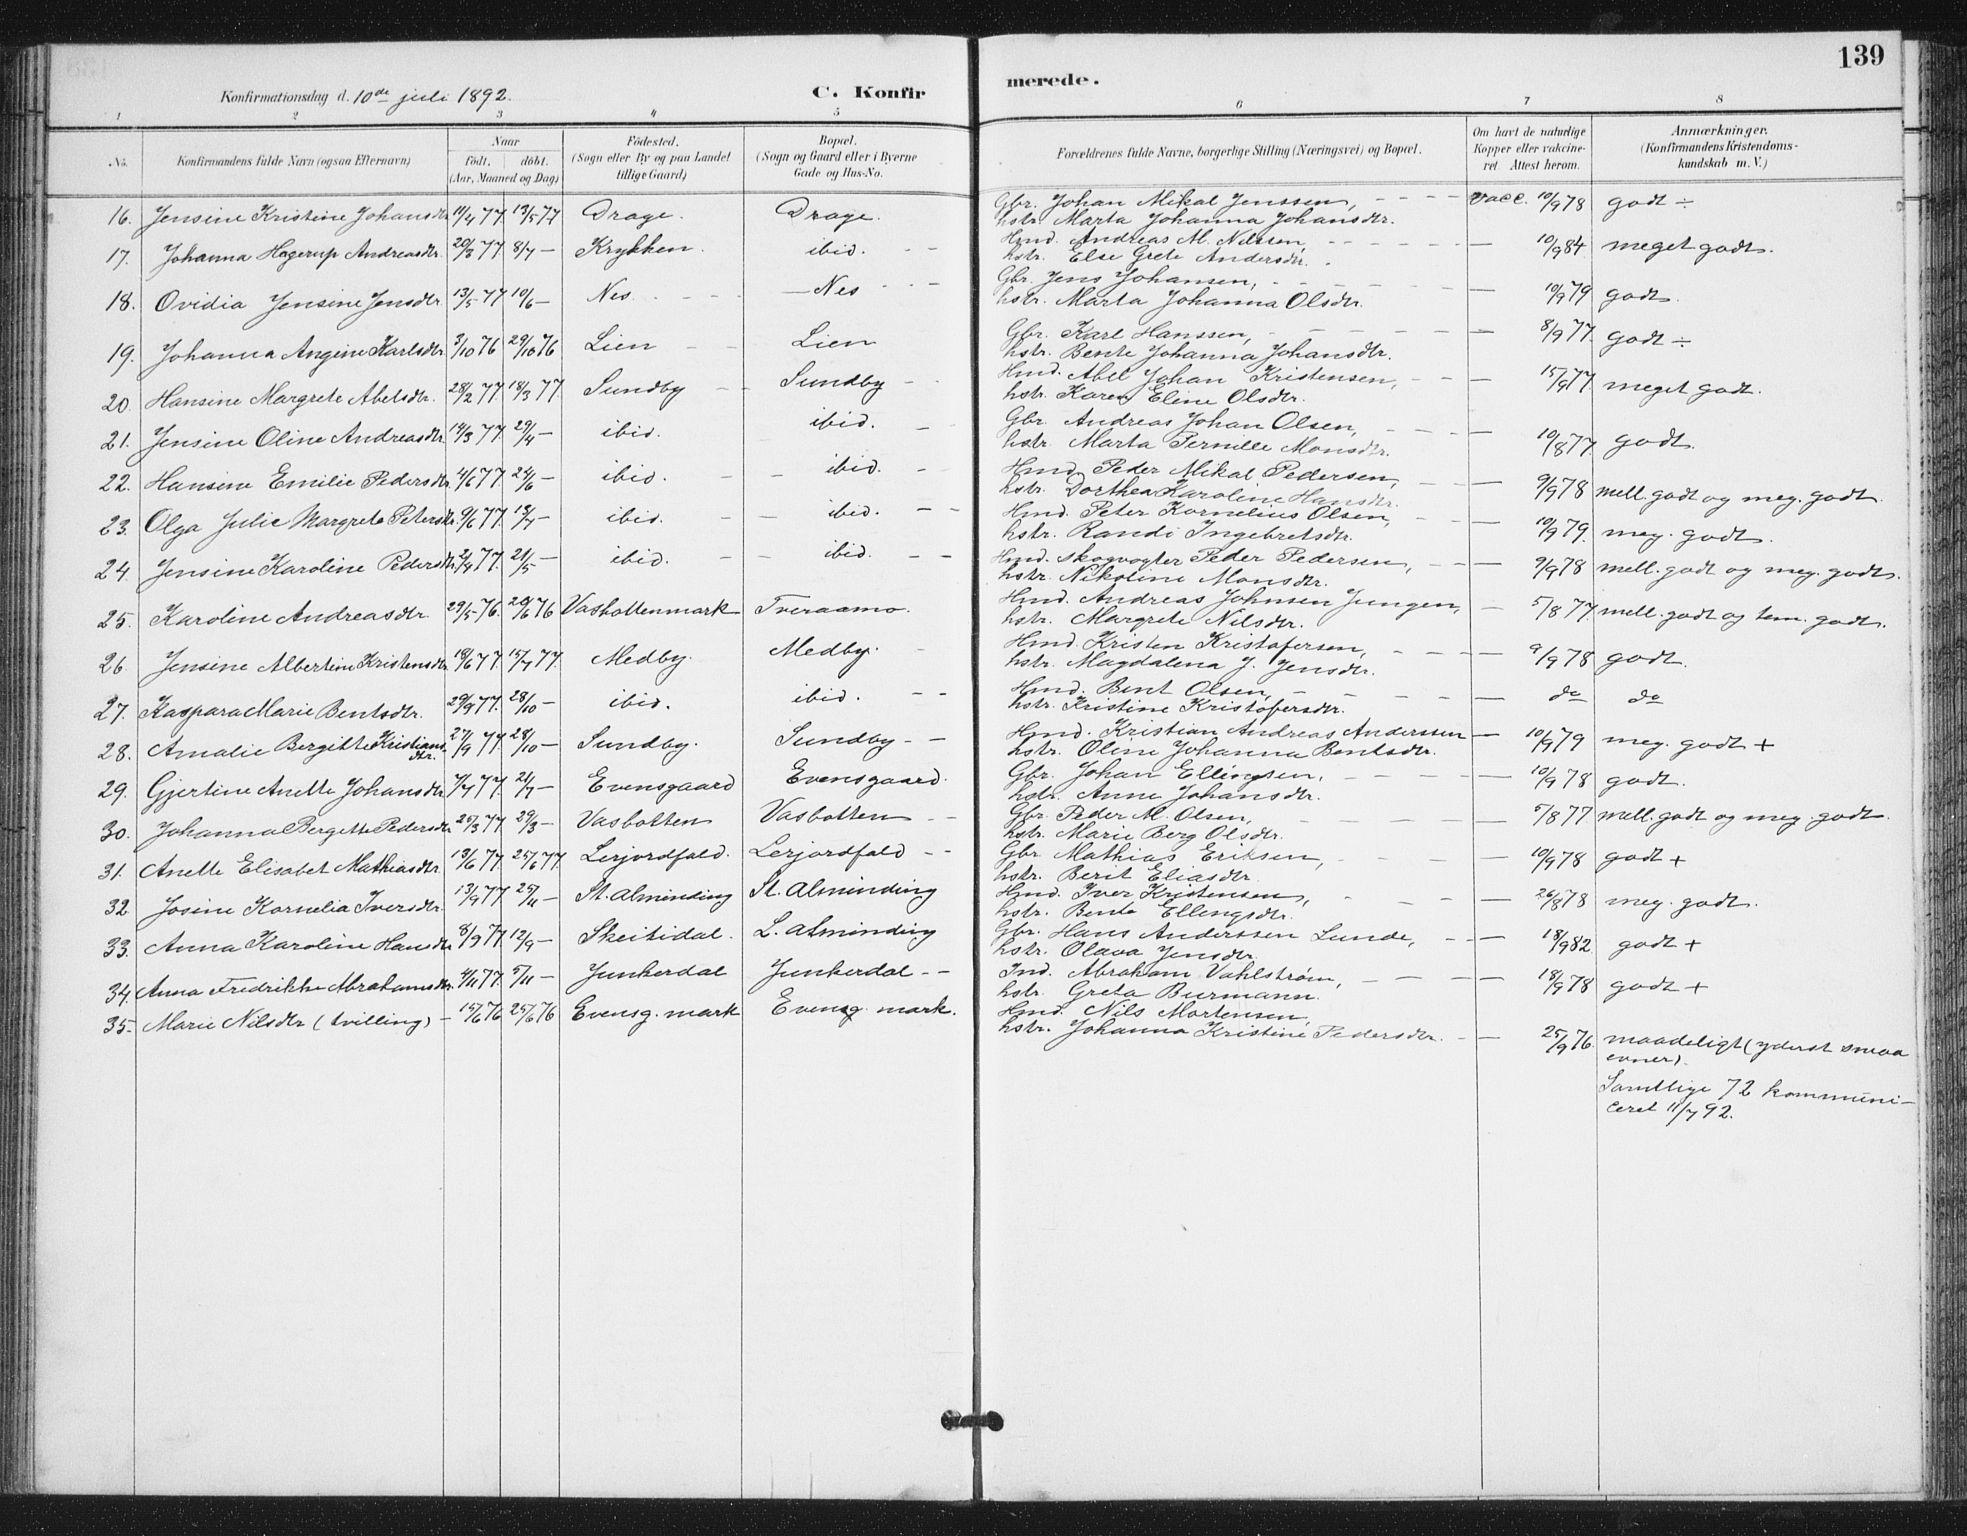 139
Konfirmationsdag d. 10de juli 1892.
C. Konfirmerede.
1 2 3 4 5 6 7 8
No.
Konfirmandens fulde Navn (ogsaa Efternavn)
Naar
födt. döbt.
(Aar, Maaned og Dag)
Födested.
(Sogn eller By og paa Landet
tillige Gaard)
Bopæl.
(Sogn og Gaard eller i Byerne
Gade og Hus-No.
Forældrenes fulde Navne, borgerlige Stilling (Næringsvei) og Bopæl.
Om havt de naturlige
Kopper eller vakcine-
ret. Attest herom.
Anmærkninger.
(Konfirmandens Kristendoms-
kundskab m. V.)
16. Jensine Kristine Johansdtr. 11/4 77. 13/5 77 Drage. Drage. Gbr. Johan Mikal Jenssen, vacc. 10/9 78 godt ÷
hstr. Marta Johanna Johansdtr.
17. Johanna Hagerup Andreasdtr. 20/3 77. 8/4 — Krykken. ibid. Hmd. Andreas M. Nilssen, — 10/9 84 meget godt.
hstr. Else Grete Andersdtr.
18. Ovidia Jensine Jensdtr 13/5 77 10/6 — Nes Nes Gbr. Jens Johansen, — 10/9 79 godt.
hstr. Marta Johanna Olsdtr.
19. Johanna Angine Karlsdtr. 3/10 76 29/10 76 Lien Lien Gbr. Karl Hanssen, — 8/9 77. godt ÷
hstr. Bente Johanna Johansdtr.
20. Hansine Margrete Abelsdtr. 28/2 77 18/3 77. Sundby Sundby Hmd. Abel Johan Kristensen, — 15/9 77 meget godt.
hstr. Karen Eline Olsdtr.
21. Jensine Oline Andreasdtr 14/3 77. 29/4 — ibid. ibid. Gbr. Andreas Johan Olsen, — 10/8 77. godt.
hstr. Marta Pernille Monsdtr.
22. Hansine Emilie Pedersdtr. 4/6 77. 24/6 — ibid. ibid. Hmd. Peder Mikal Pedersen, — 9/9 78 mell. godt og meg. godt.
hstr. Dorthea Karoline Hansdtr.
23. Olga Julie Margrete Petersdtr. 9/6 77. — ibid. ibid. Hmd. Peter Kornelius Olsen, — 10/9 79. meg. godt.
hstr. Randi Ingebretsdtr.
24. Jensine Karoline Pedersdtr. 77. 21/5 — ibid. ibid. Hmd. skogvogter Peder Pedersen, — 9/9 78 mell. godt og meg. godt.
hstr. Nikoline Monsdtr.
25. Karoline Andreasdtr. 29/5 76. 76 Vasbottenmark Tveraamo. Hmd. Andreas Johnsen Jungen, — 5/8 77. mell. godt og tem. godt.
hstr. Margrete Nilsdtr.
26 Jensine Albertine Kristensdtr 77. 15/7 77. Medby. Medby. Hmd. Kristen Kristofersen, — 9/9 78 godt.
hstr. Magdalena J. Jensdtr.
27. Kaspara Marie Bentsdtr. 29/9 77. 28/10 — ibid. ibid. Hmd. Bent Olsen, — do do
hstr. Kristine Kristofersdtr.
28. Amalie Bergitte Kristiansdtr. 27/9 77. 28/10 — Sundby. Sundby Hmd. Kristian Andreas Anderssen — 10/9 79 meg. godt +
hstr. Oline Johanna Bentsdtr.
29. Gjertine Anette Johansdtr 77. — Evensgaard Evensgaard. Gbr. Johan Ellingsen, — 10/9 78 godt.
hstr. Anne Johansdtr.
30. Johanna Bergette Pedersdtr. 77. 29/3 — Vasbotten Vasbotten Gbr. Peder M. Olsen, — 5/8 77 mell. godt og meg. godt.
hstr. Marie Berg Olsdtr.
31. Anette Elisabet Mathiasdtr. 13/6 77. 25/6 77. Lerjordfald. Lerjordfald Gbr Mathias Eriksen, — 10/9 78 godt +
hstr. Berit Eliasdtr.
32. Josine Kornelia Iversdtr. 13/9 77. 25/11 — St. Alminding St. Alminding Hmd. Iver Kristensen, — 26/8 78 meg. godt.
hstr. Bente Ellingsdtr.
33. Anna Karoline Hansdtr 8/9 77. 12/9 — Skeitidal. L. Alminding Gbr. Hans Anderssen Lunde, — 18/9 82 godt +
hstr. Olava Jensdtr.
34. Anna Fredrikke Abrahamsdtr. 4/11 77. 5/11 — Junkerdal Junkerdal Ind. Abraham Vahlström, — 18/9 78 godt +
hstr. Greta Burmann.
35. Marie Nilsdtr (tvilling) — 15/6 76 25/6 76 Evensg. mark Evensg. mark. Hmd. Nils Mortensen,
hstr. Johanna Kristine Pedersdtr. — 25/9 76. maadeligt (yderst smaa
evner).
Samtlige 72 kommuni-
ceret 11/7 92.